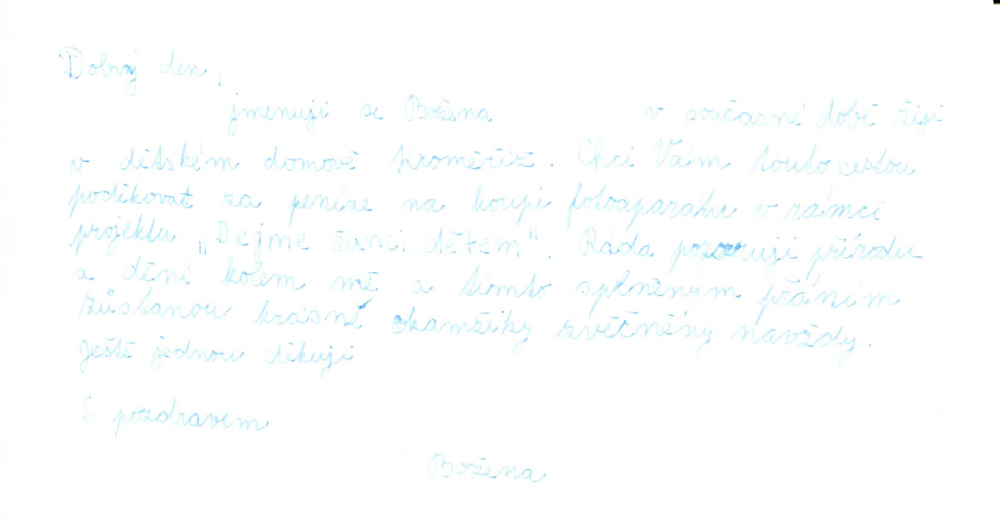 Dobrý den,
jmenuji se Božena v současné době žiji
v dětském domově Kroměříž. Chci Vám touto cestou
poděkovat za peníze na koupi fotoaparátu v rámci
projektu „Dejme šanci dětem". Ráda pozoruji přírodu
a dění kolem mě a tímto splněným přáním
zůstanou krásné okamžiky zvěčněny navždy.
Ještě jednou děkuji
S pozdravem
Božena